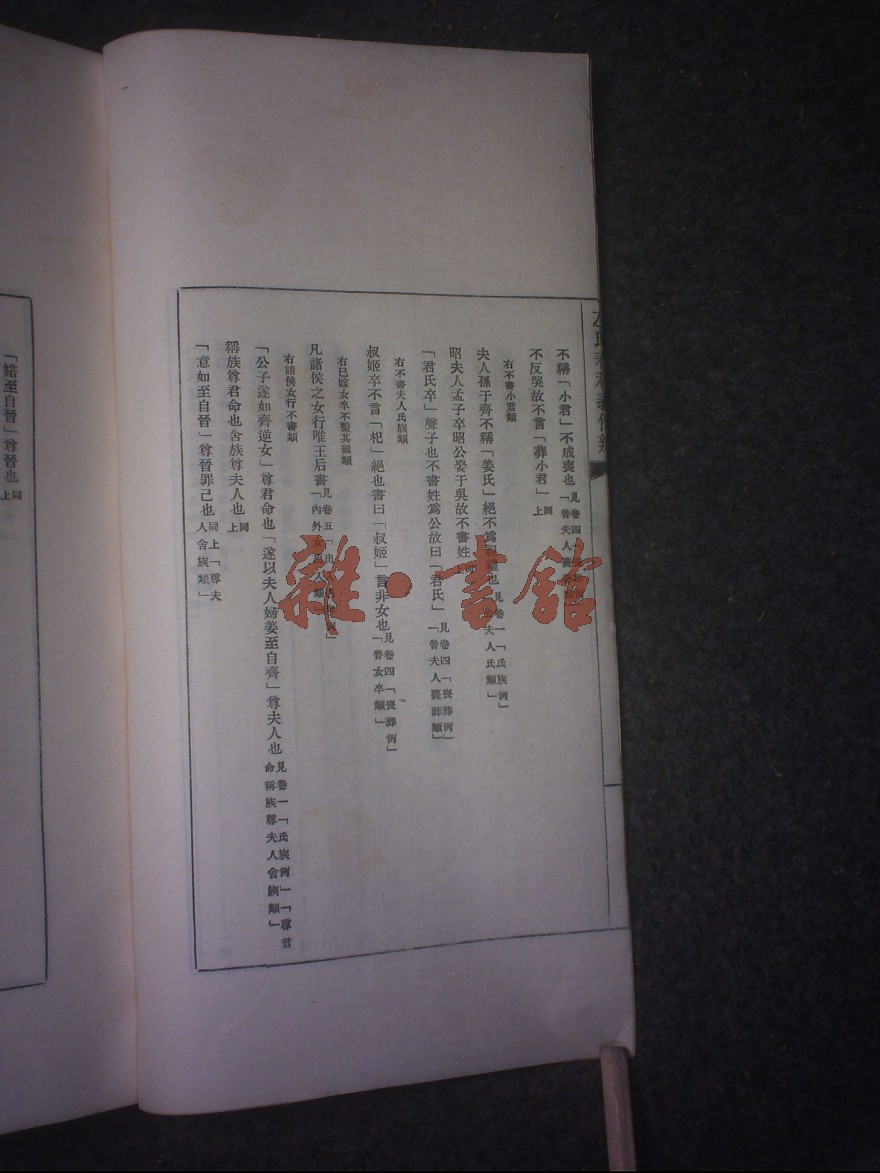 不稱「小君」不成喪也見卷四
不反哭故不言「葬小君」同上
右不書小君類
夫人孫于齊不稱「姜氏」絕不爲親也見卷一「氏族例」夫人氏類」
昭夫人孟子卒昭公娶于吳故不書姓
「君氏卒」聲子也不書姓爲公故曰「君氏」見卷四「喪葬例」「魯夫人薨葬類」
右不書夫人氏族類
叔姬卒不言「杞」絕也書曰「叔姬」言非女也見卷四「喪葬例」「魯女卒類」
右已嫁女卒不繫其國類
凡諸侯之女行唯王后書見卷五「出例」「內外女出入類」
右諸侯女行不書類
「公子遂如齊逆女」尊君命也「遂以夫人婦姜至自齊」尊夫人也見卷一「氏族例」「尊君命稱族尊夫人舍族類」
稱族尊君命也舍族尊夫人也同上
「意如至自晉」尊晉罪己也同上「尊夫人舍族類」
「婼至自晉」尊晉也同上
雜·書館